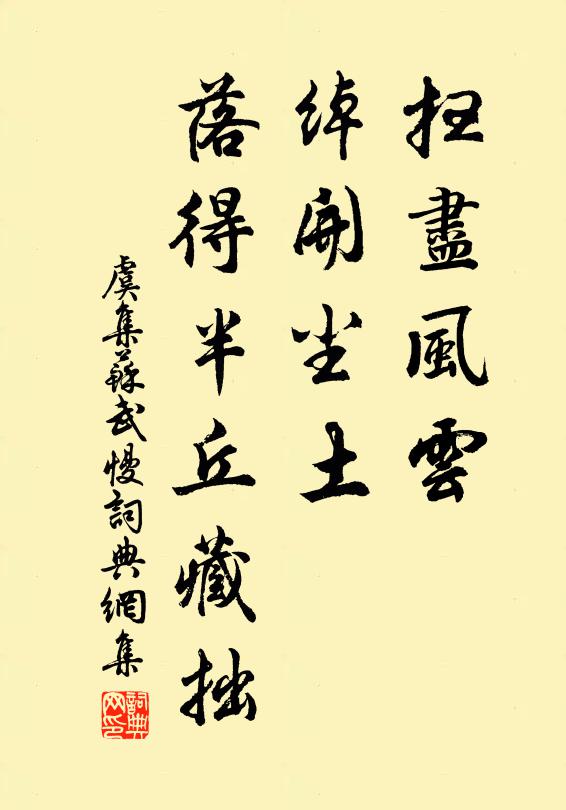 掃盡風雲
綽開尘土
落得半丘藏拙
虞集蘇武慢詞典網集
詞典網印